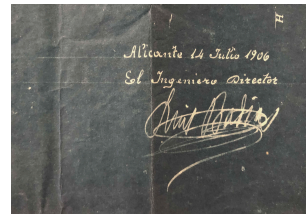 H
Alicante 14 Julio 1906
El Ingeniero Director